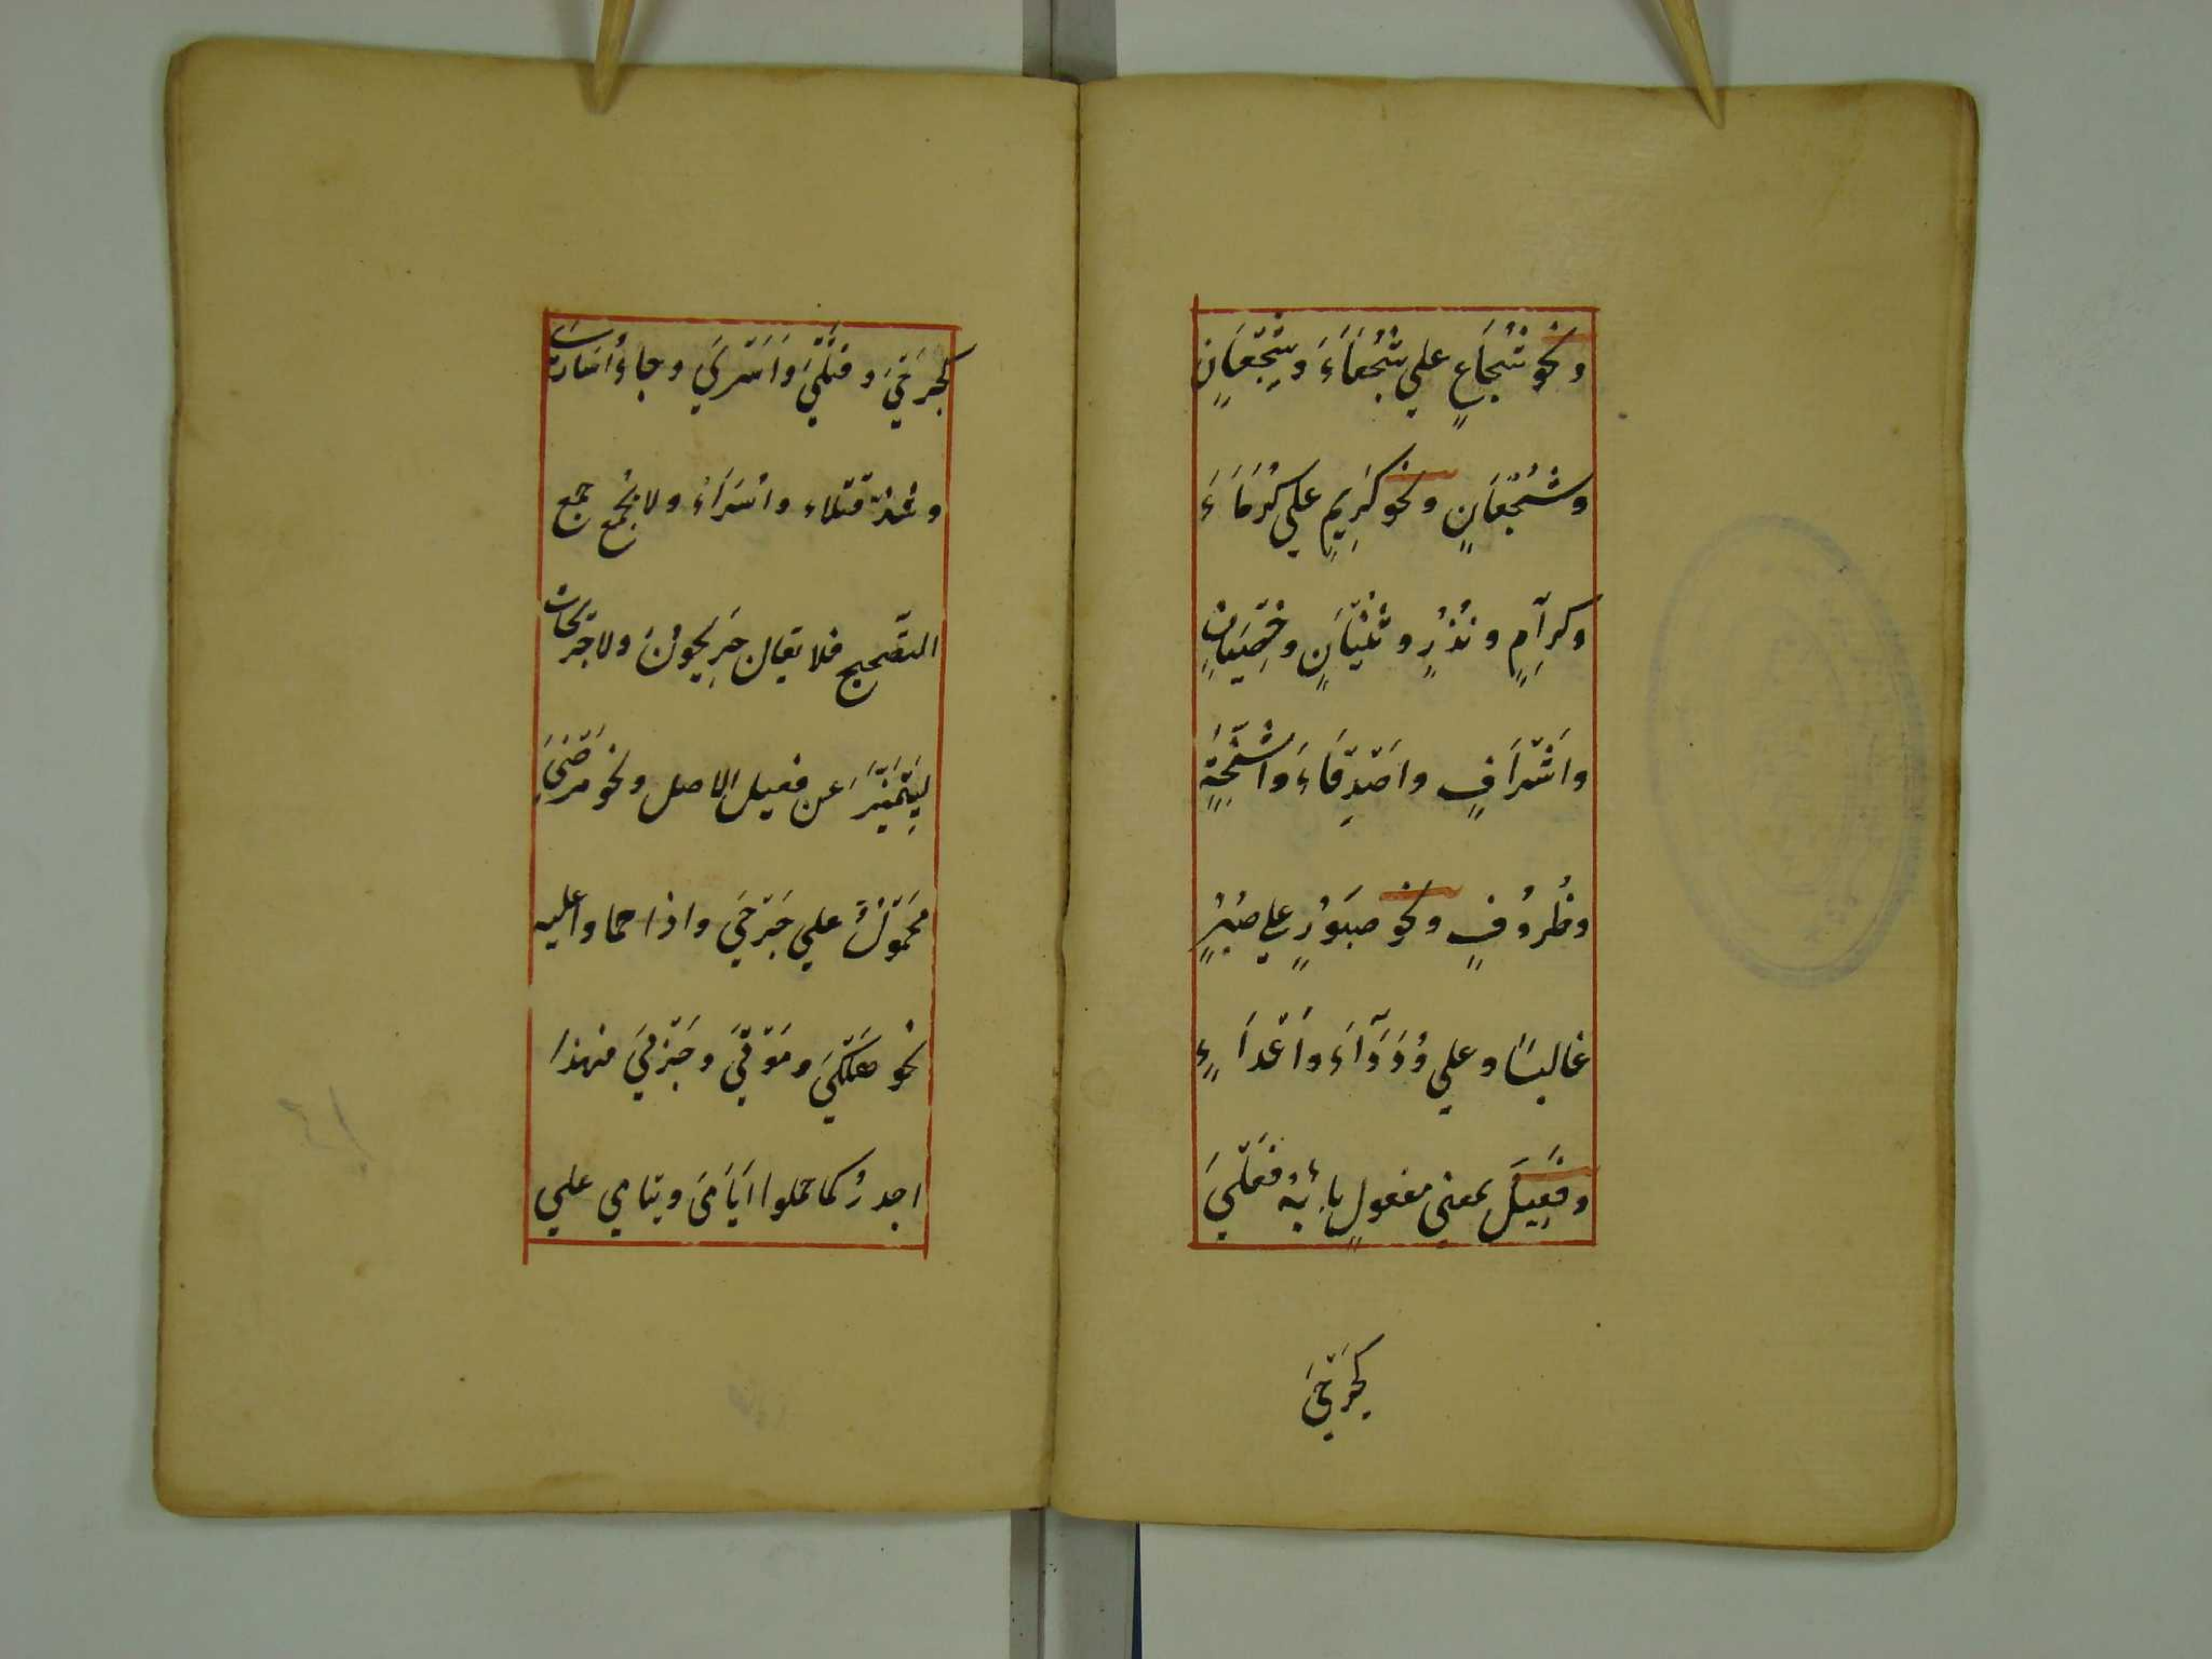 ونحو شُجَاعٍ علي شُجَعَاءَ وشِجْعَانٍ
وشُجْعَانٍ ونحو كَرِيمٍ علي كُرَمَاءَ
وكِرَآمٍ ونُذُرٍ وثُنْيَانٍ وخِصْيَانٍ
واَشْرَافٍ واَصْدِقَاءَ وَاَشِحَّةٍ
وظُرُوفٍ ونحو صبَوُرٍ علي صُبُرٍ
غالبًا وعلي وُدَدَآءَ واَعْدَاءٍ
وفَعِيلَ بمعني مفعولٍ بابُهُ فَعْلَيَ
كجَرْحَيَ
كجَرْحَيَ وقَتْلَيَ وَاَسْرَيَ وجاءَ اُسَارَي
وشذّ قتلاء واُسَرَاءُ ولا يُجمع جمع
التصْحيح فلا يقال جَرِيحُونَ ولا جَرِيحَات
لِيَتَمَيَّزَ عن فعيل الاصل ونحو مَرْضَيَ
مَحْمُولٌ علي جَرْحَيَ واذا حملوا عليه
نحو هَلْكَيَ ومَوْتَيَ وجَرْبَيَ فهذا
اجدرُ كما حملوا اَيَامَيَ ويتامي علي